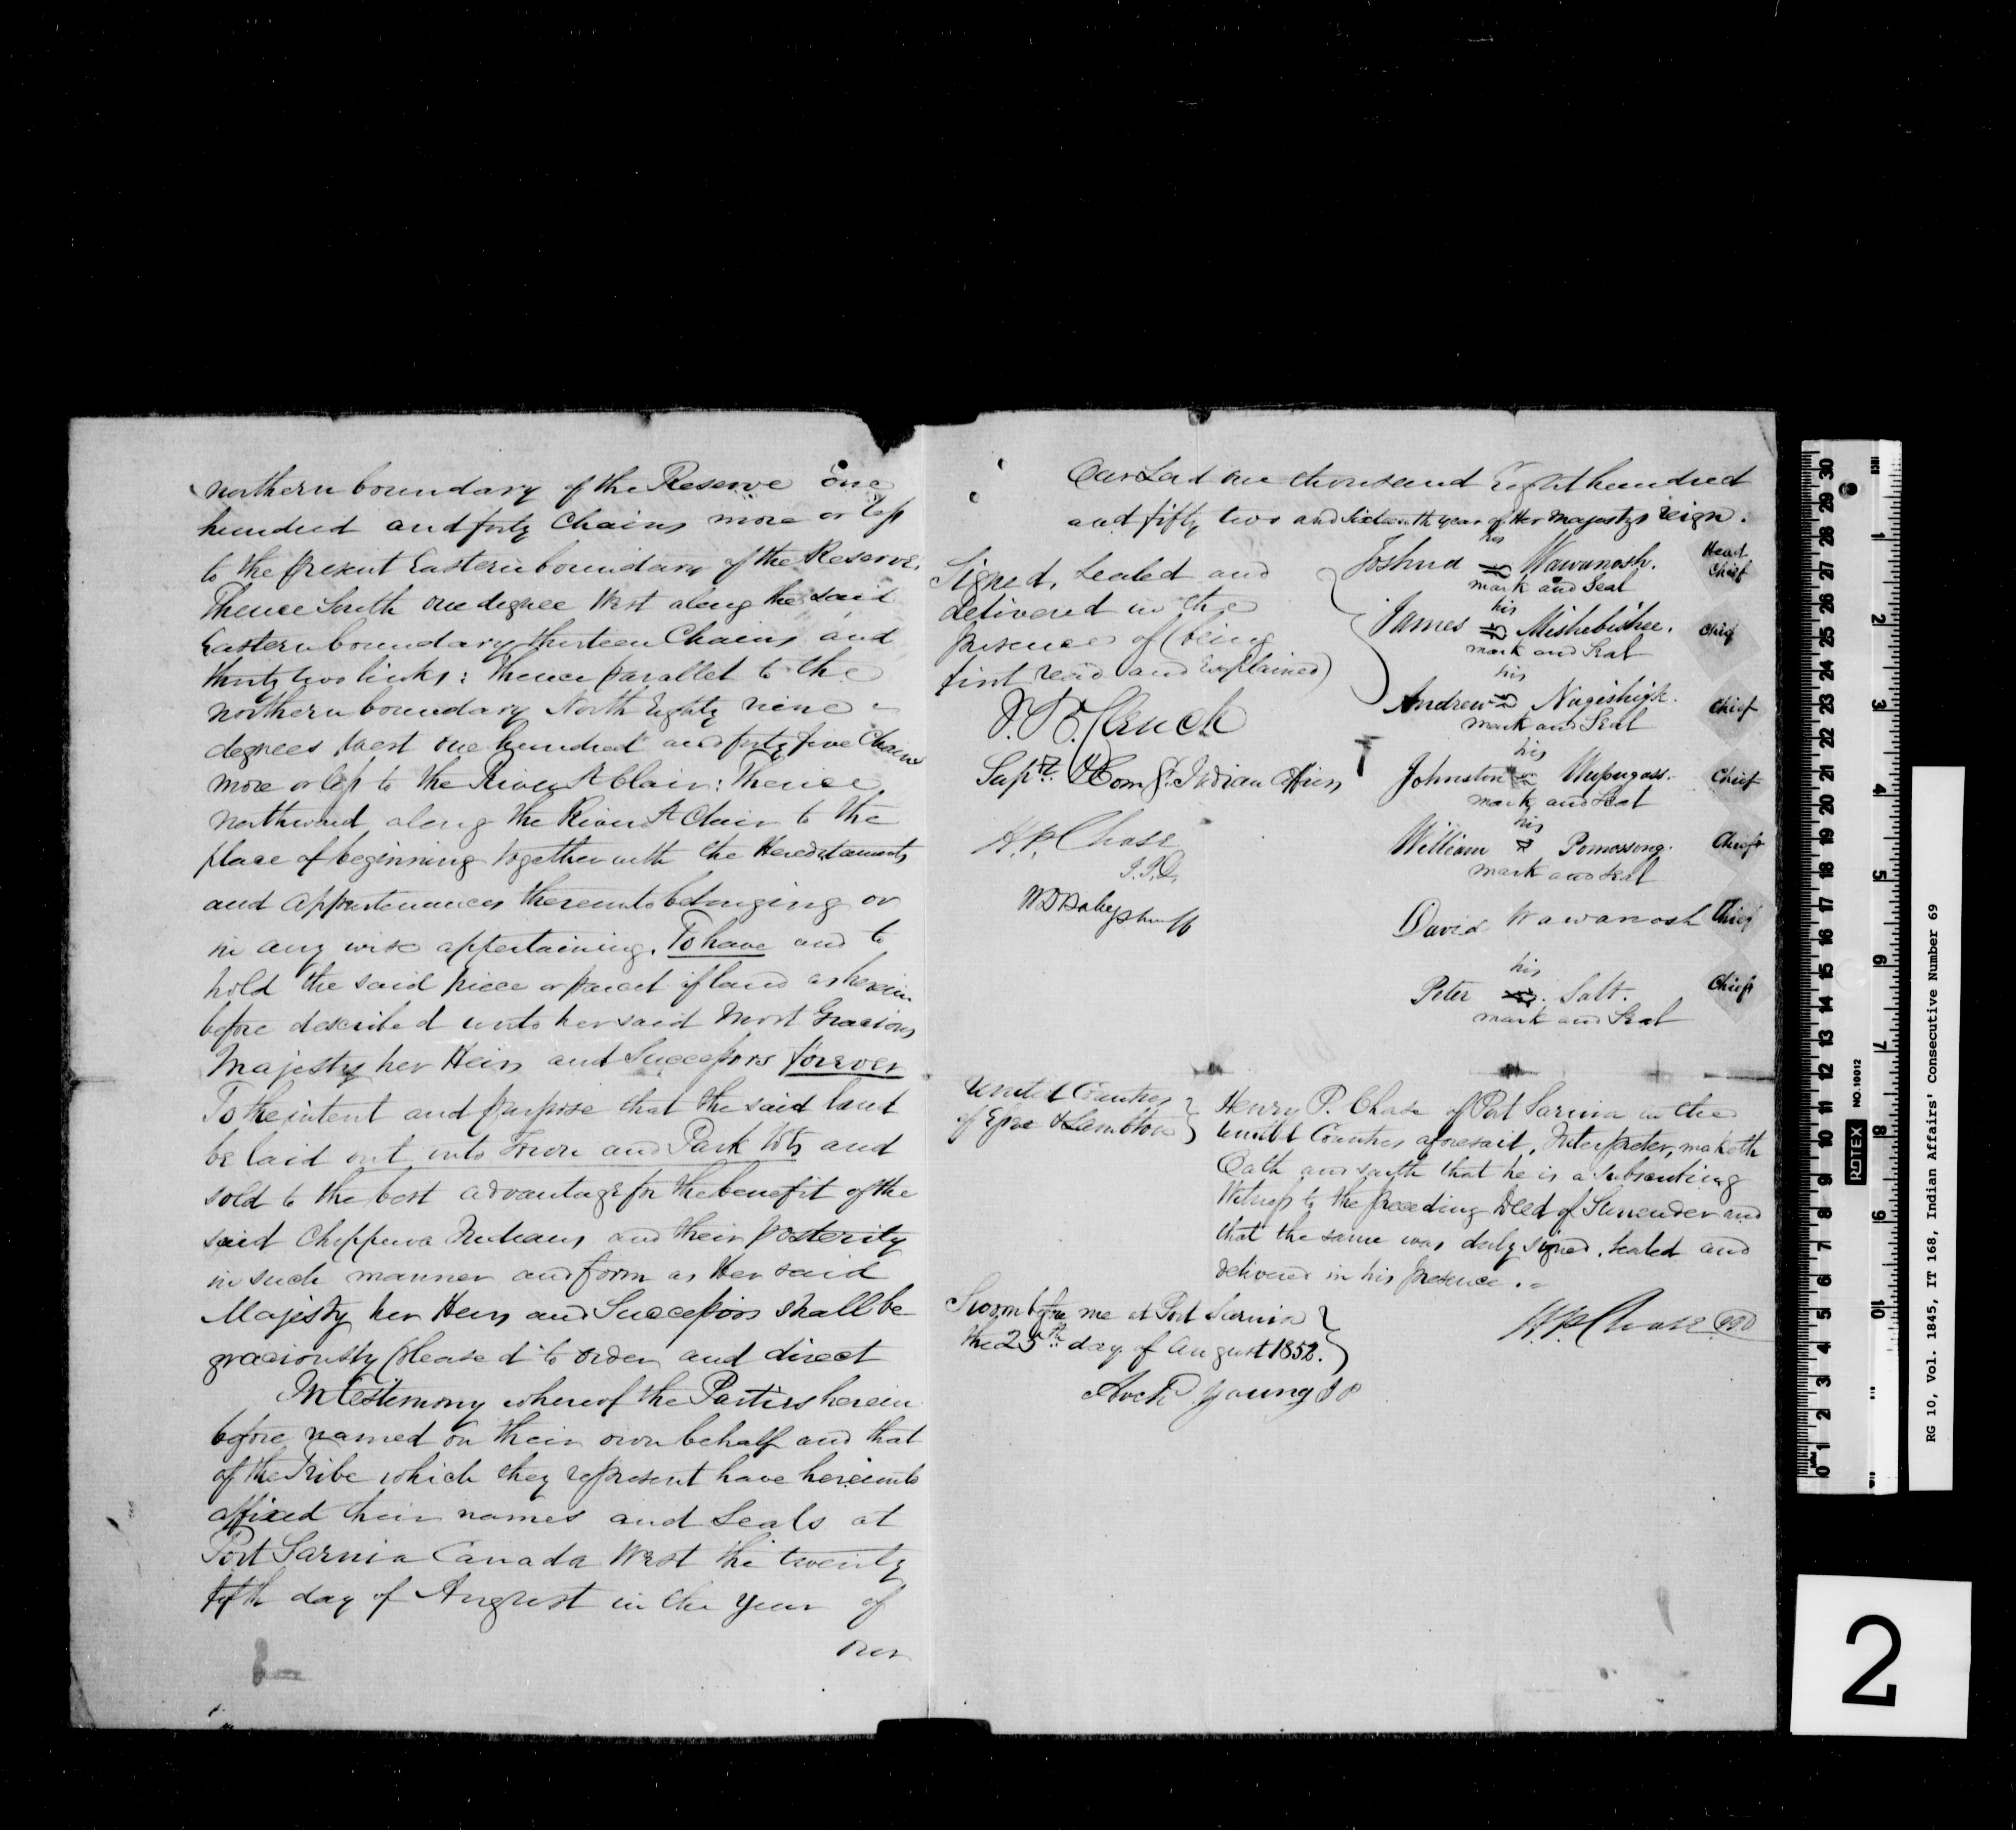 northern boundary of the Reserve one
hundred and forty Chains more or less
to the present Eastern boundary of the Reserve:
Thence South one degree West along the said
Eastern boundary thirteen Chains and
thirty two links: thence parallel to the
northern boundary North Eighty nine
degrees West one hundred and forty five Chains
more or less to the River St Clair: Thence
northward along the River St Clair to the
place of beginning together with the Hereditaments
and appurtenances thereunto belonging or
in any wise appertaining. To have and to
hold the said piece or parcel of land as herein
before described unto her said Most Gracious
Majesty her Heirs and Successors forever
To the intent and purpose that the said land
be laid out into Town and Park lots and
sold to the best advantage for the benefit of the
said Chippewa Indians and their posterity
in such manner and form as Her said
Majesty her Heirs and Successors shall be
graciously pleased to order and direct
In testimony whereof the Parties herein
before named on their own behalf and that
of the Tribe which they represent have hereunto
affixed their names and Seals at
Port Sarnia Canada West the twenty
fifth day of August in the year of
our
Our Lord one thousand Eight hundred
and fifty two and Sixteenth year of Her Majestys reign.
Signed, Sealed and
delivered in the
presence of (being
first read and explained)
J. B. Clench
Supt. & Comr. Indian Affairs
H. P. Chase
his
Joshua Wawanosh. Head Chief
mark and Seal
his
James Mishebishee. Chief
mark and Seal
his
Andrew Nagishigk. Chief
mark and Seal
his
Johnston Chief
mark and Seal
his
William Pomassong. Chief
mark and Seal
David Wawanosh Chief
his
Peter Salt. Chief
mark and Seal
United Counties
of Essex & Lambton
Henry P. Chase of Port Sarnia in the
United Counties aforesaid, Interpreter, maketh
Oath and saith that he is a Subscribing
Witness to the preceding Deed of Surrender and
that the same was duly signed, Sealed and
delivered in his presence.
Sworn before me at Port Sarnia
the 25th day of August 1852.
H. P. Chase
Archd Young J P
RG 10, Vol. 1845, IT 168, Indian Affairs' Consecutive Number 69
ROTEX NO.10012
0 1 2 3 4 5 6 7 8 9 10 11 12 13 14 15 16 17 18 19 20 21 22 23 24 25 26 27 28 29 30
1 2 3 4 5 6 7 8 9 10
2